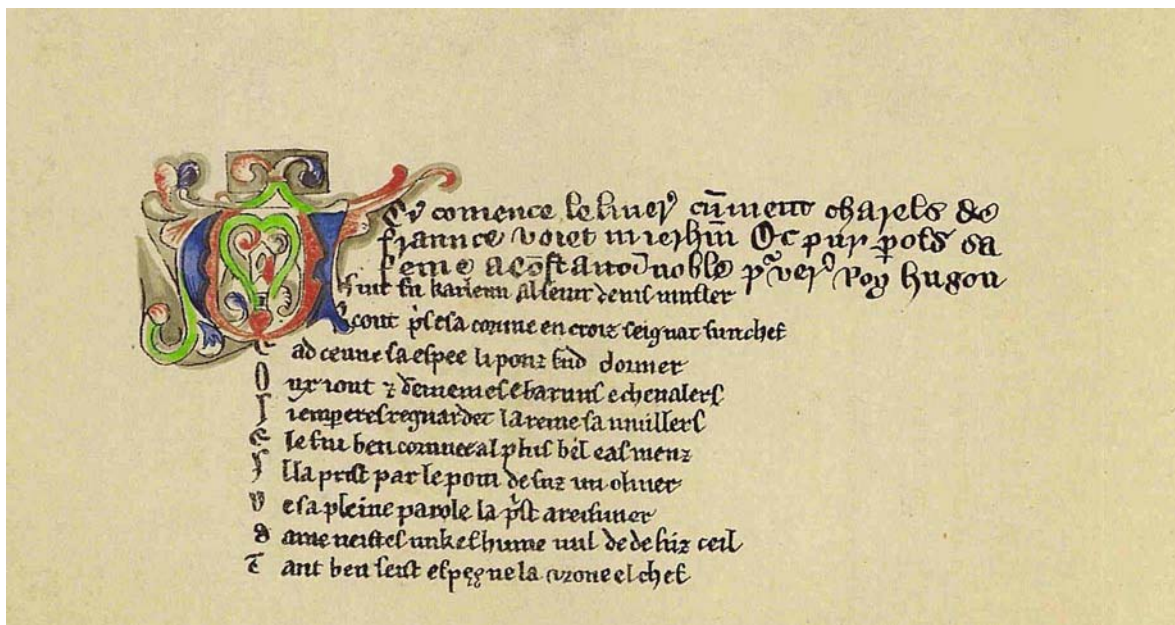 Cy comence le liuer cũment charels de
fraunce uoiet in ierhm̄ Et pur parols sa
feme a Cõstantinoble pᵃ uerˀ roy hugon
U n iur fu karleun al seint denis muster
R eout pˈse sa corune en croiz seignat sun chef
E ad ceinte sa espee li ponz fud dormer
D ux i out ⁊ demeines e baruns e cheualers
l i emperes reguardet la reine sa muillers
e le fut ben corunee al plus bel e as menz
I l la prist par le poin desuz un oliuer
D e sa pleine parole la pˈst a reisuner
d ame ueistes unkes hume nul de desuz ceil
T ant ben seist espee ne la corone el chef